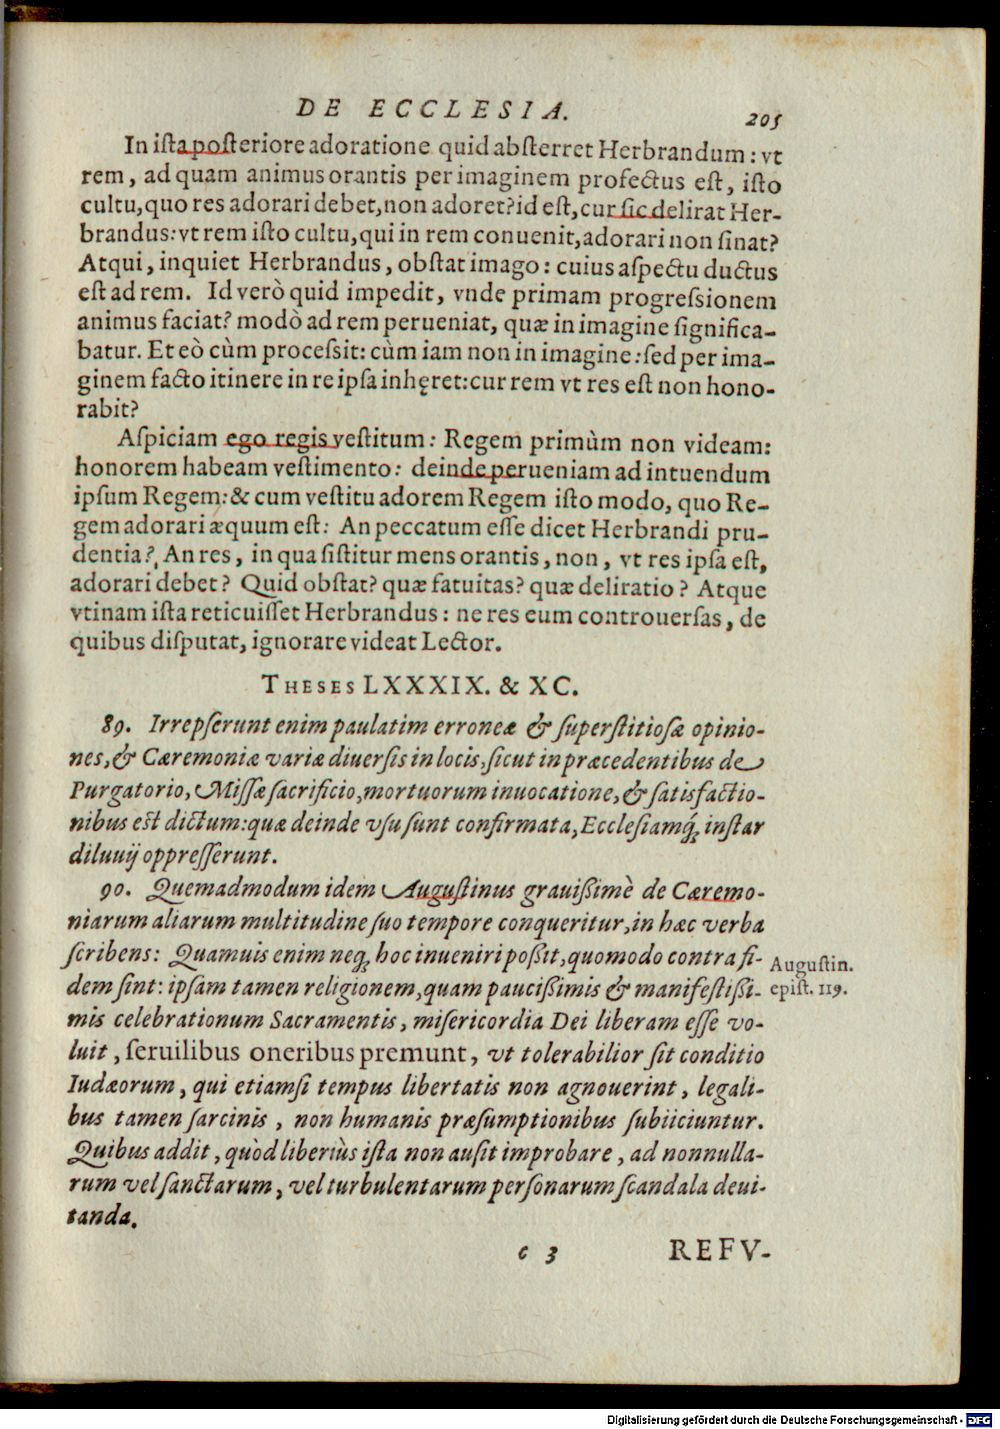 DE ECCLESIA. 205
In iſta poſteriore adoratione quid abſterret Herbrandum: vt
rem, ad quam animus orantis per imaginem profectus eſt, iſto
cultu, quo res adorari debet, non adoret? id eſt, cur ſic delirat Her-
brandus: vt rem iſto cultu, qui in rem conuenit, adorari non ſinat?
Atqui, inquiet Herbrandus, obſtat imago: cuius aſpectu ductus
eſt ad rem. Id verò quid impedit, vnde primam progreſsionem
animus faciat? modò ad rem perueniat, quæ in imagine ſignifica-
batur. Et eò cùm proceſsit: cùm iam non in imagine: ſed per ima-
ginem facto itinere in re ipſa inhęret: cur rem vt res eſt non hono-
rabit?
Aſpiciam ego regis veſtitum: Regem primùm non videam:
honorem habeam veſtimento: deinde perueniam ad intuendum
ipſum Regem: & cum veſtitu adorem Regem iſto modo, quo Re-
gem adorari æquum eſt: An peccatum eſſe dicet Herbrandi pru-
dentia? An res, in qua ſiſtitur mens orantis, non, vt res ipſa eſt,
adorari debet? Quid obſtat? quæ fatuitas? quæ deliratio? Atque
vtinam iſta reticuiſſet Herbrandus: ne res eum controuerſas, de
quibus diſputat, ignorare videat Lector.
THESES LXXXIX. & XC.
89. Irrepſerunt enim paulatim erroneæ & ſuperſtitioſæ opinio-
nes, & Cæremoniæ variæ diuerſis in locis, ſicut in præcedentibus de
Purgatorio, Miſſæ ſacrificio, mortuorum inuocatione, & ſatisfactio-
nibus est dictum: quæ deinde vſu ſunt confirmata, Eccleſiamq́; inſtar
diluuij oppreſſerunt.
90. Quemadmodum idem Auguſtinus grauißimè de Cæremo-
niarum aliarum multitudine ſuo tempore conqueritur, in hæc verba
ſcribens: Quamuis enim neq; hoc inueniri poßit, quomodo contra fi-
dem ſint: ipſam tamen religionem, quam paucißimis & manifeſtißi-
mis celebrationum Sacramentis, miſericordia Dei liberam eſſe vo-
luit, ſeruilibus oneribus premunt, vt tolerabilior ſit conditio
Iudæorum, qui etiamſi tempus libertatis non agnouerint, legali-
bus tamen ſarcinis, non humanis præſumptionibus ſubiiciuntur.
Quibus addit, quòd liberiùs iſta non auſit improbare, ad nonnulla-
rum vel ſanctarum, vel turbulentarum perſonarum ſcandala deui-
tanda.
Auguſtin.
epiſt. 119.
c 3 REFV-
Digitalisierung gefördert durch die Deutsche Forschungsgemeinschaft - DFG